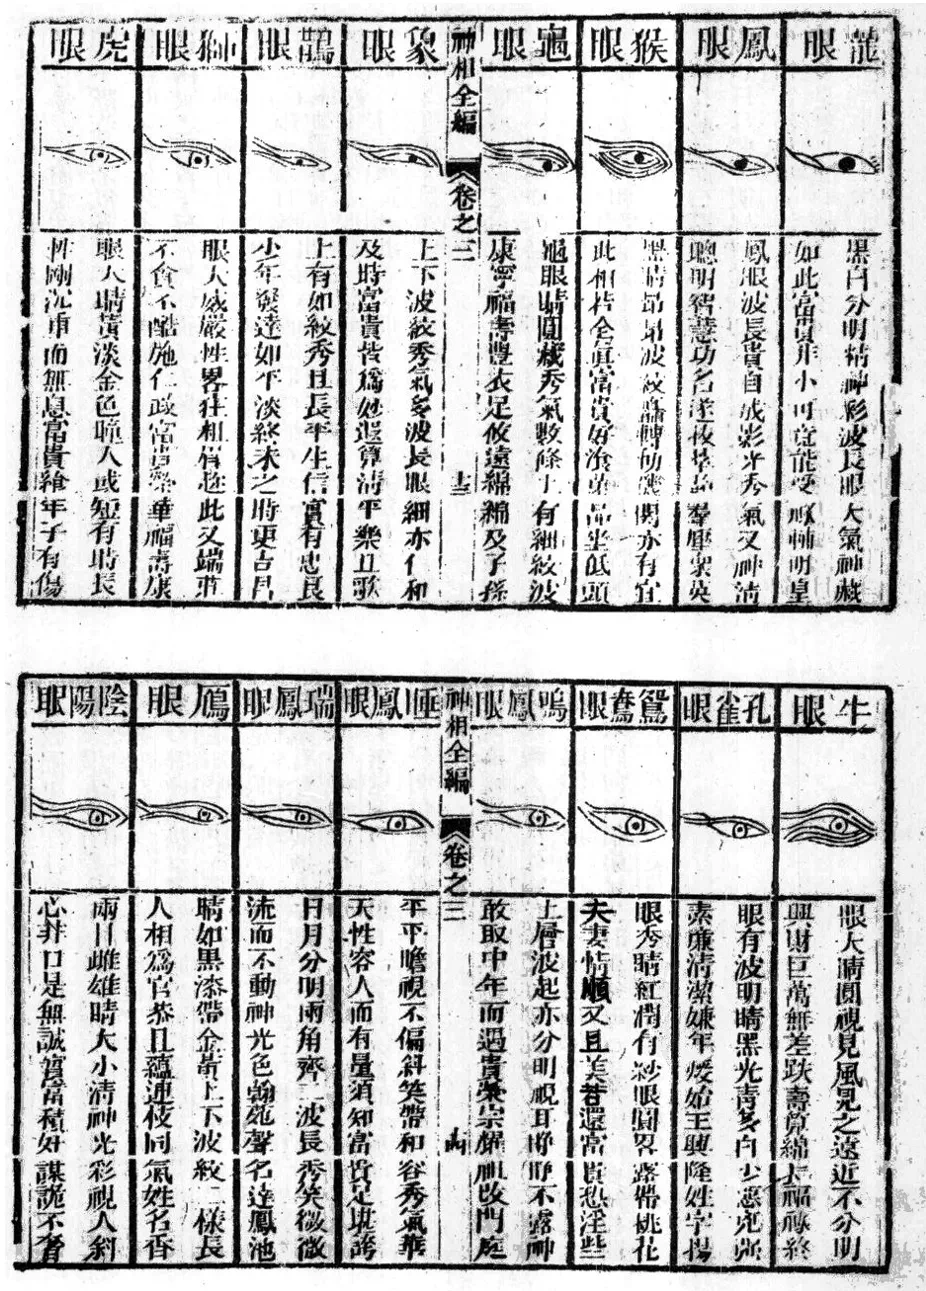 龍眼
黑白分明精神彩波長眼大氣神藏
如此富貴非小可竟能受祿輔明皇
鳳眼
鳳眼波長貴自成影光秀氣又神清
聰明智慧功名遂拔萃超羣壓眾英
猴眼
黑睛昂昂波紋疊轉動機關亦有宜
此相若全真富貴好飡菓品坐低頭
龜眼
龜眼睛圓藏秀氣數條上有細紋波
康寧福壽豐衣足攸遠綿綿及子孫
神相全編 卷之三 十三
象眼
上下波紋秀氣多波長眼細亦仁和
及時富貴皆爲妙遐算清平樂且歌
鵲眼
上有如紋秀且長平生信實有忠良
少年發達如平淡終末之時更吉昌
獅眼
眼大威嚴性畧狂粗眉趂此又端莊
不貪不酷施仁政富貴榮華福壽康
虎眼
眼大睛黃淡金色瞳人或短有時長
性剛沉重而無患富貴終年子有傷
牛眼
眼大睛圓視見風見之遠近不分明
興財巨萬無差跌壽算綿長福祿終
孔雀眼
眼有波明睛黑光青多白少惡兇強
素廉清潔嫌年煖始王興隆姓字揚
鴛鴦眼
眼秀睛紅潤有紗眼圓畧露帶桃花
夫妻情順又且美若還富貴恐淫些
鳴鳳眼
上層波起亦分明視耳睜睜不露神
敢取中年而遇貴榮宗耀祖改門庭
神相全編 卷之三 十四
睡鳳眼
平平瞻視不偏斜笑帶和容秀氣華
天性容人而有量須知富貴足堪誇
瑞鳳眼
日月分明兩角齊二波長秀笑微微
流而不動神光色翰苑聲名達鳳池
鴈眼
睛如黑漆帶金黃上下波紋一樣長
人相爲官恭且蘊連枝同氣姓名香
陰陽眼
兩目雌雄睛大小清神光彩視人斜
心非口是無誠實富積奸謀詭不奢